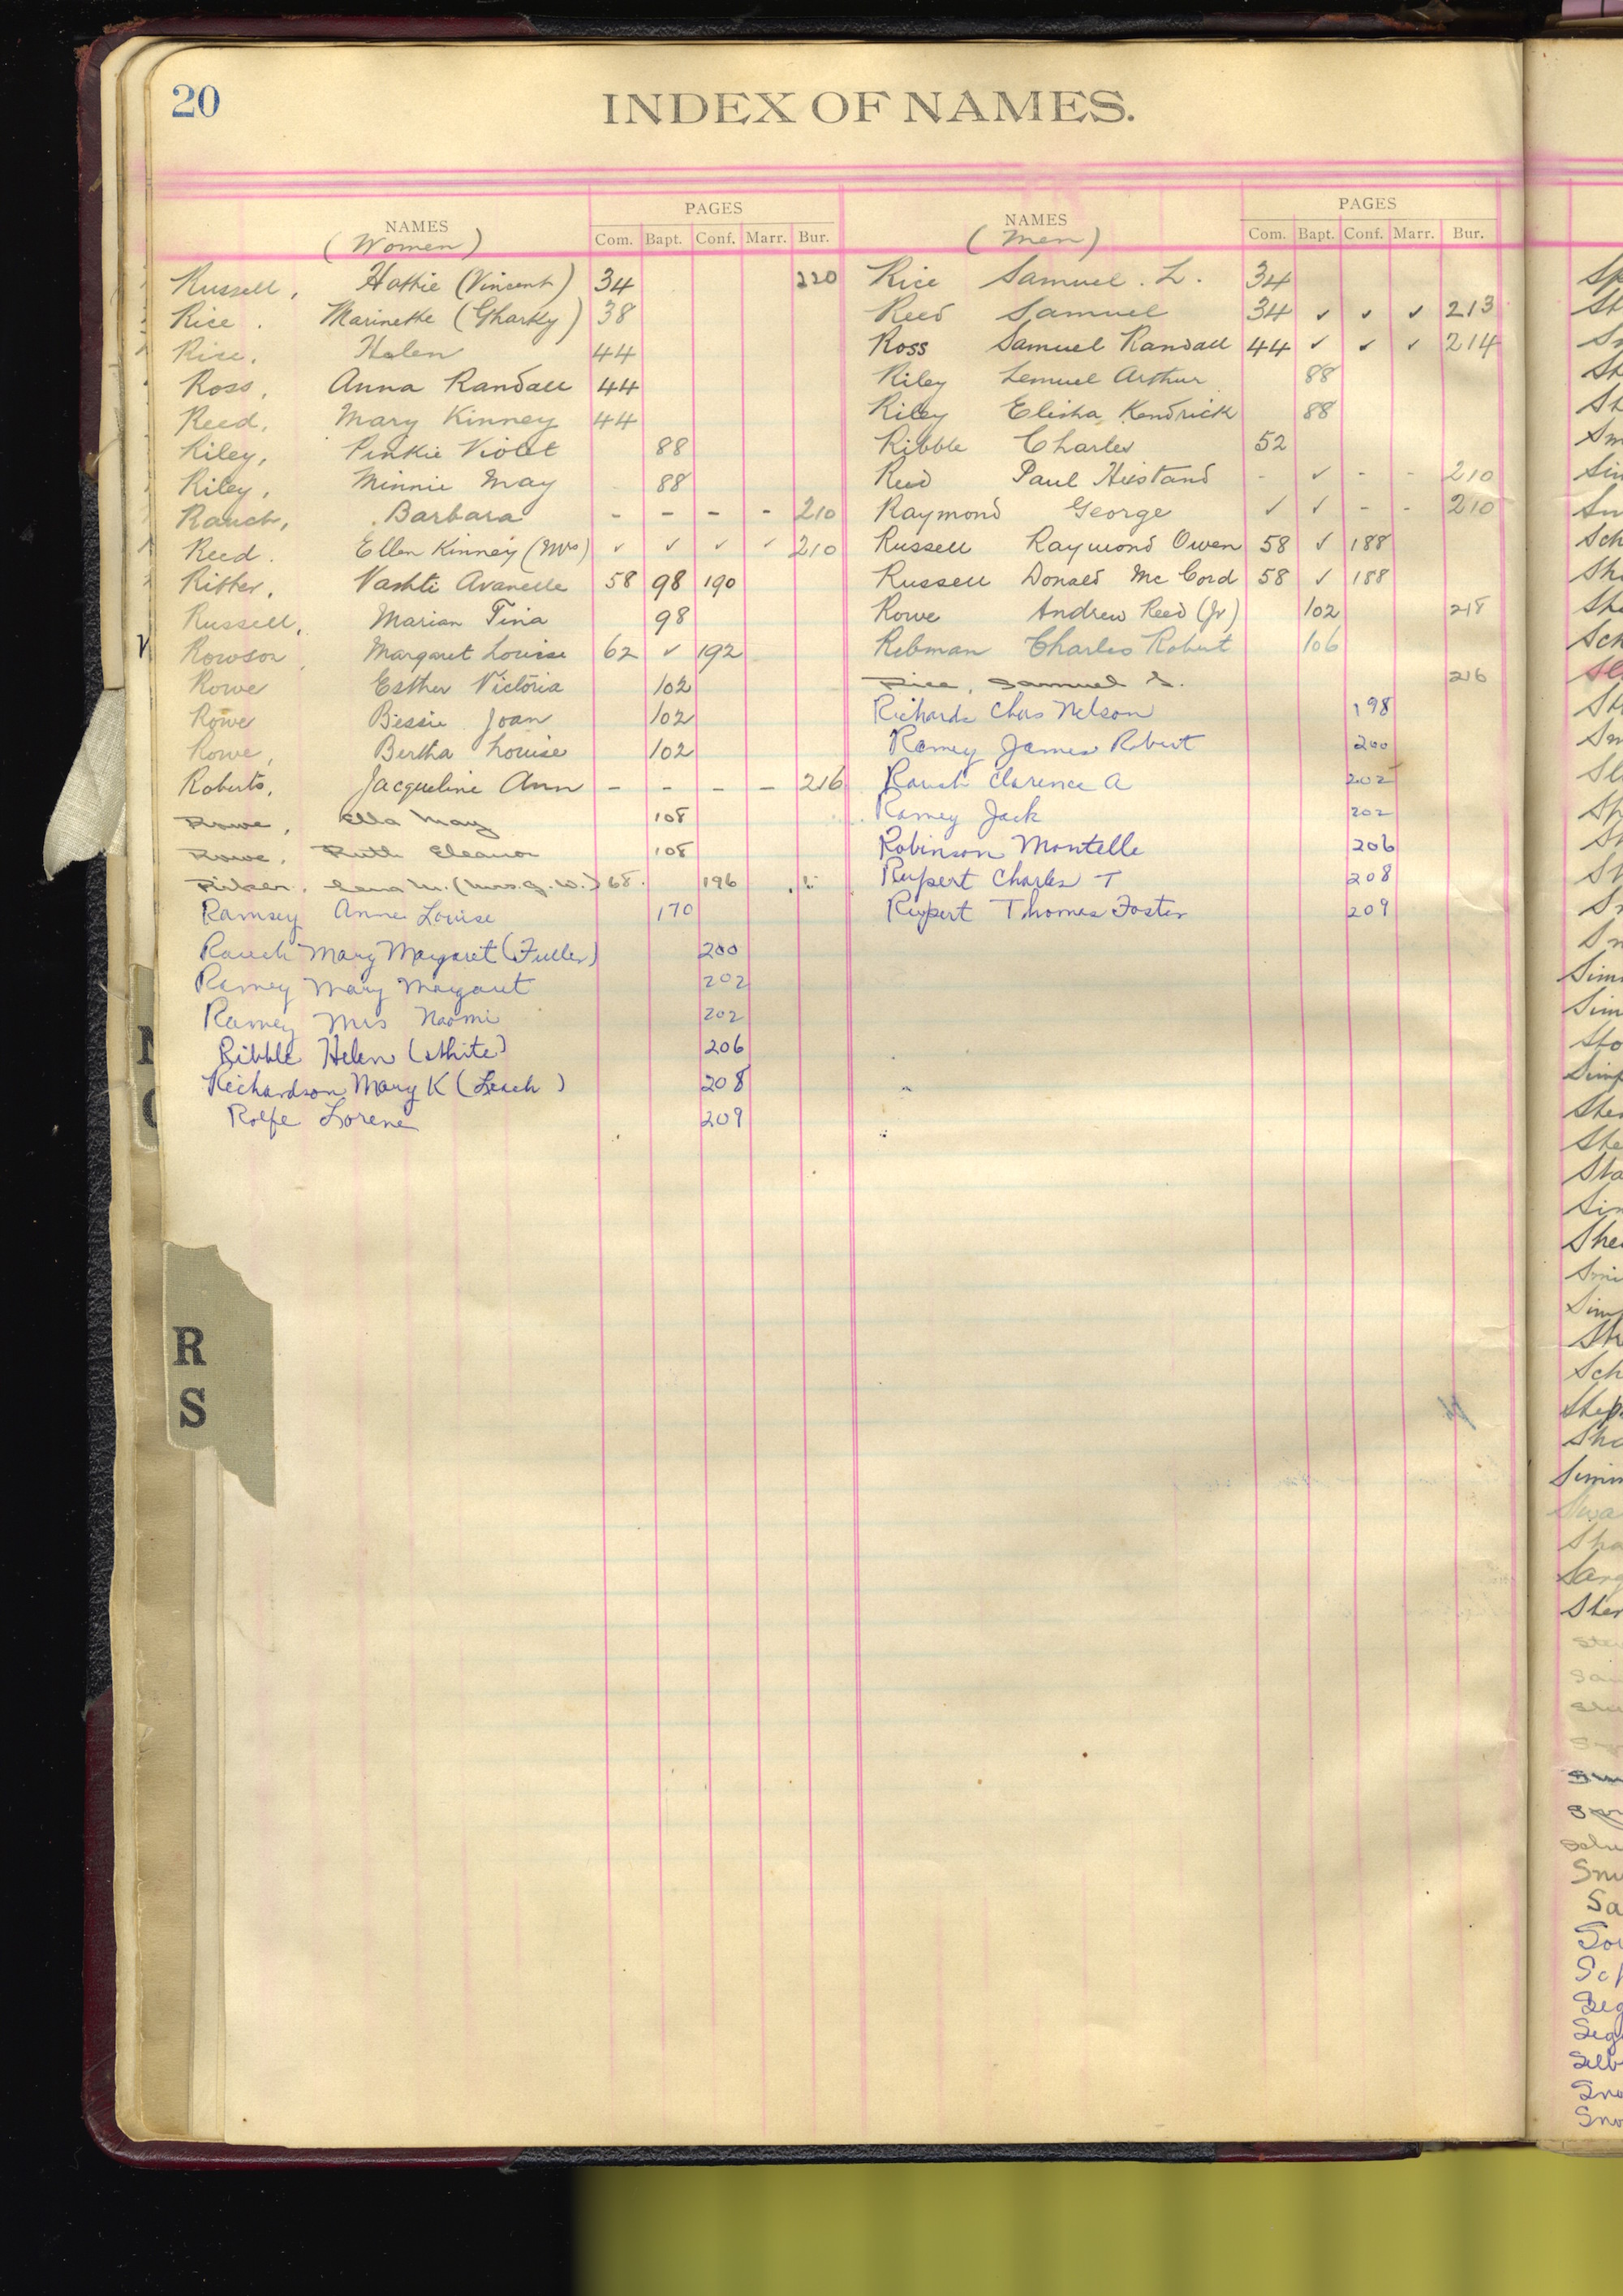 20
INDEX OF NAMES.
NAMES
(Women)
PAGES
Com. Bapt. Conf. Marr. Bur.
Russell, Hattie (Vincent) 34 220
Rice. Marinette (Gharky) 38
Rice. Helen 44
Ross, Anna Randall 44
Reed, Mary Kinney 44
Riley, Pinkie Violet 88
Riley, Minnie May 88
Rauch, Barbara - - - - 210
Reed. Ellen Kinney (Mrs) ✓ ✓ ✓ ✓ 210
Ritter, Vashti Avanelle 58 98 190
Russell, Marian Tina 98
Rowson, Margaret Louise 62 ✓ 192
Rowe Esther Victoria 102
Rowe Bessie Joan 102
Rowe, Bertha Louise 102
Roberts, Jacqueline Ann - - - - 216
Rowe, Ella May 108
Rowe, Ruth Eleanor 108
Lena M. (Mrs. G. W.) 68. 196
Ramsey Anne Louise 170
Rauch Mary Margaret (Fuller) 200
Ramey Mary Margaret 202
Ramey Mrs Naomi 202
Ribble Helen (White) 206
Richardson Mary K (Leach) 208
Rolfe Lorene 209
NAMES
(Men)
PAGES
Com. Bapt. Conf. Marr. Bur.
Rice Samuel. L. 34
Reed Samuel 34 ✓ ✓ ✓ 213
Ross Samuel Randall 44 ✓ ✓ ✓ 214
Riley Lemuel Arthur 88
Riley Elisha Kendrick 88
Ribble Charles 52
Reed Paul Hiestand - ✓ - - 210
Raymond George ✓ ✓ - - 210
Russell Raymond Owen 58 ✓ 188
Russell Donald Mc Cord 58 ✓ 188
Rowe Andrew Reed (Jr) 102 218
Rebman Charles Robert 106
Rice, Samuel L. 216
Richards Chas Nelson 198
Ramey James Robert 200
Rauch Clarence A 202
Ramey Jack 202
Robinson Montelle 206
Rupert Charles T 208
Rupert Thomas Foster 209
R
S